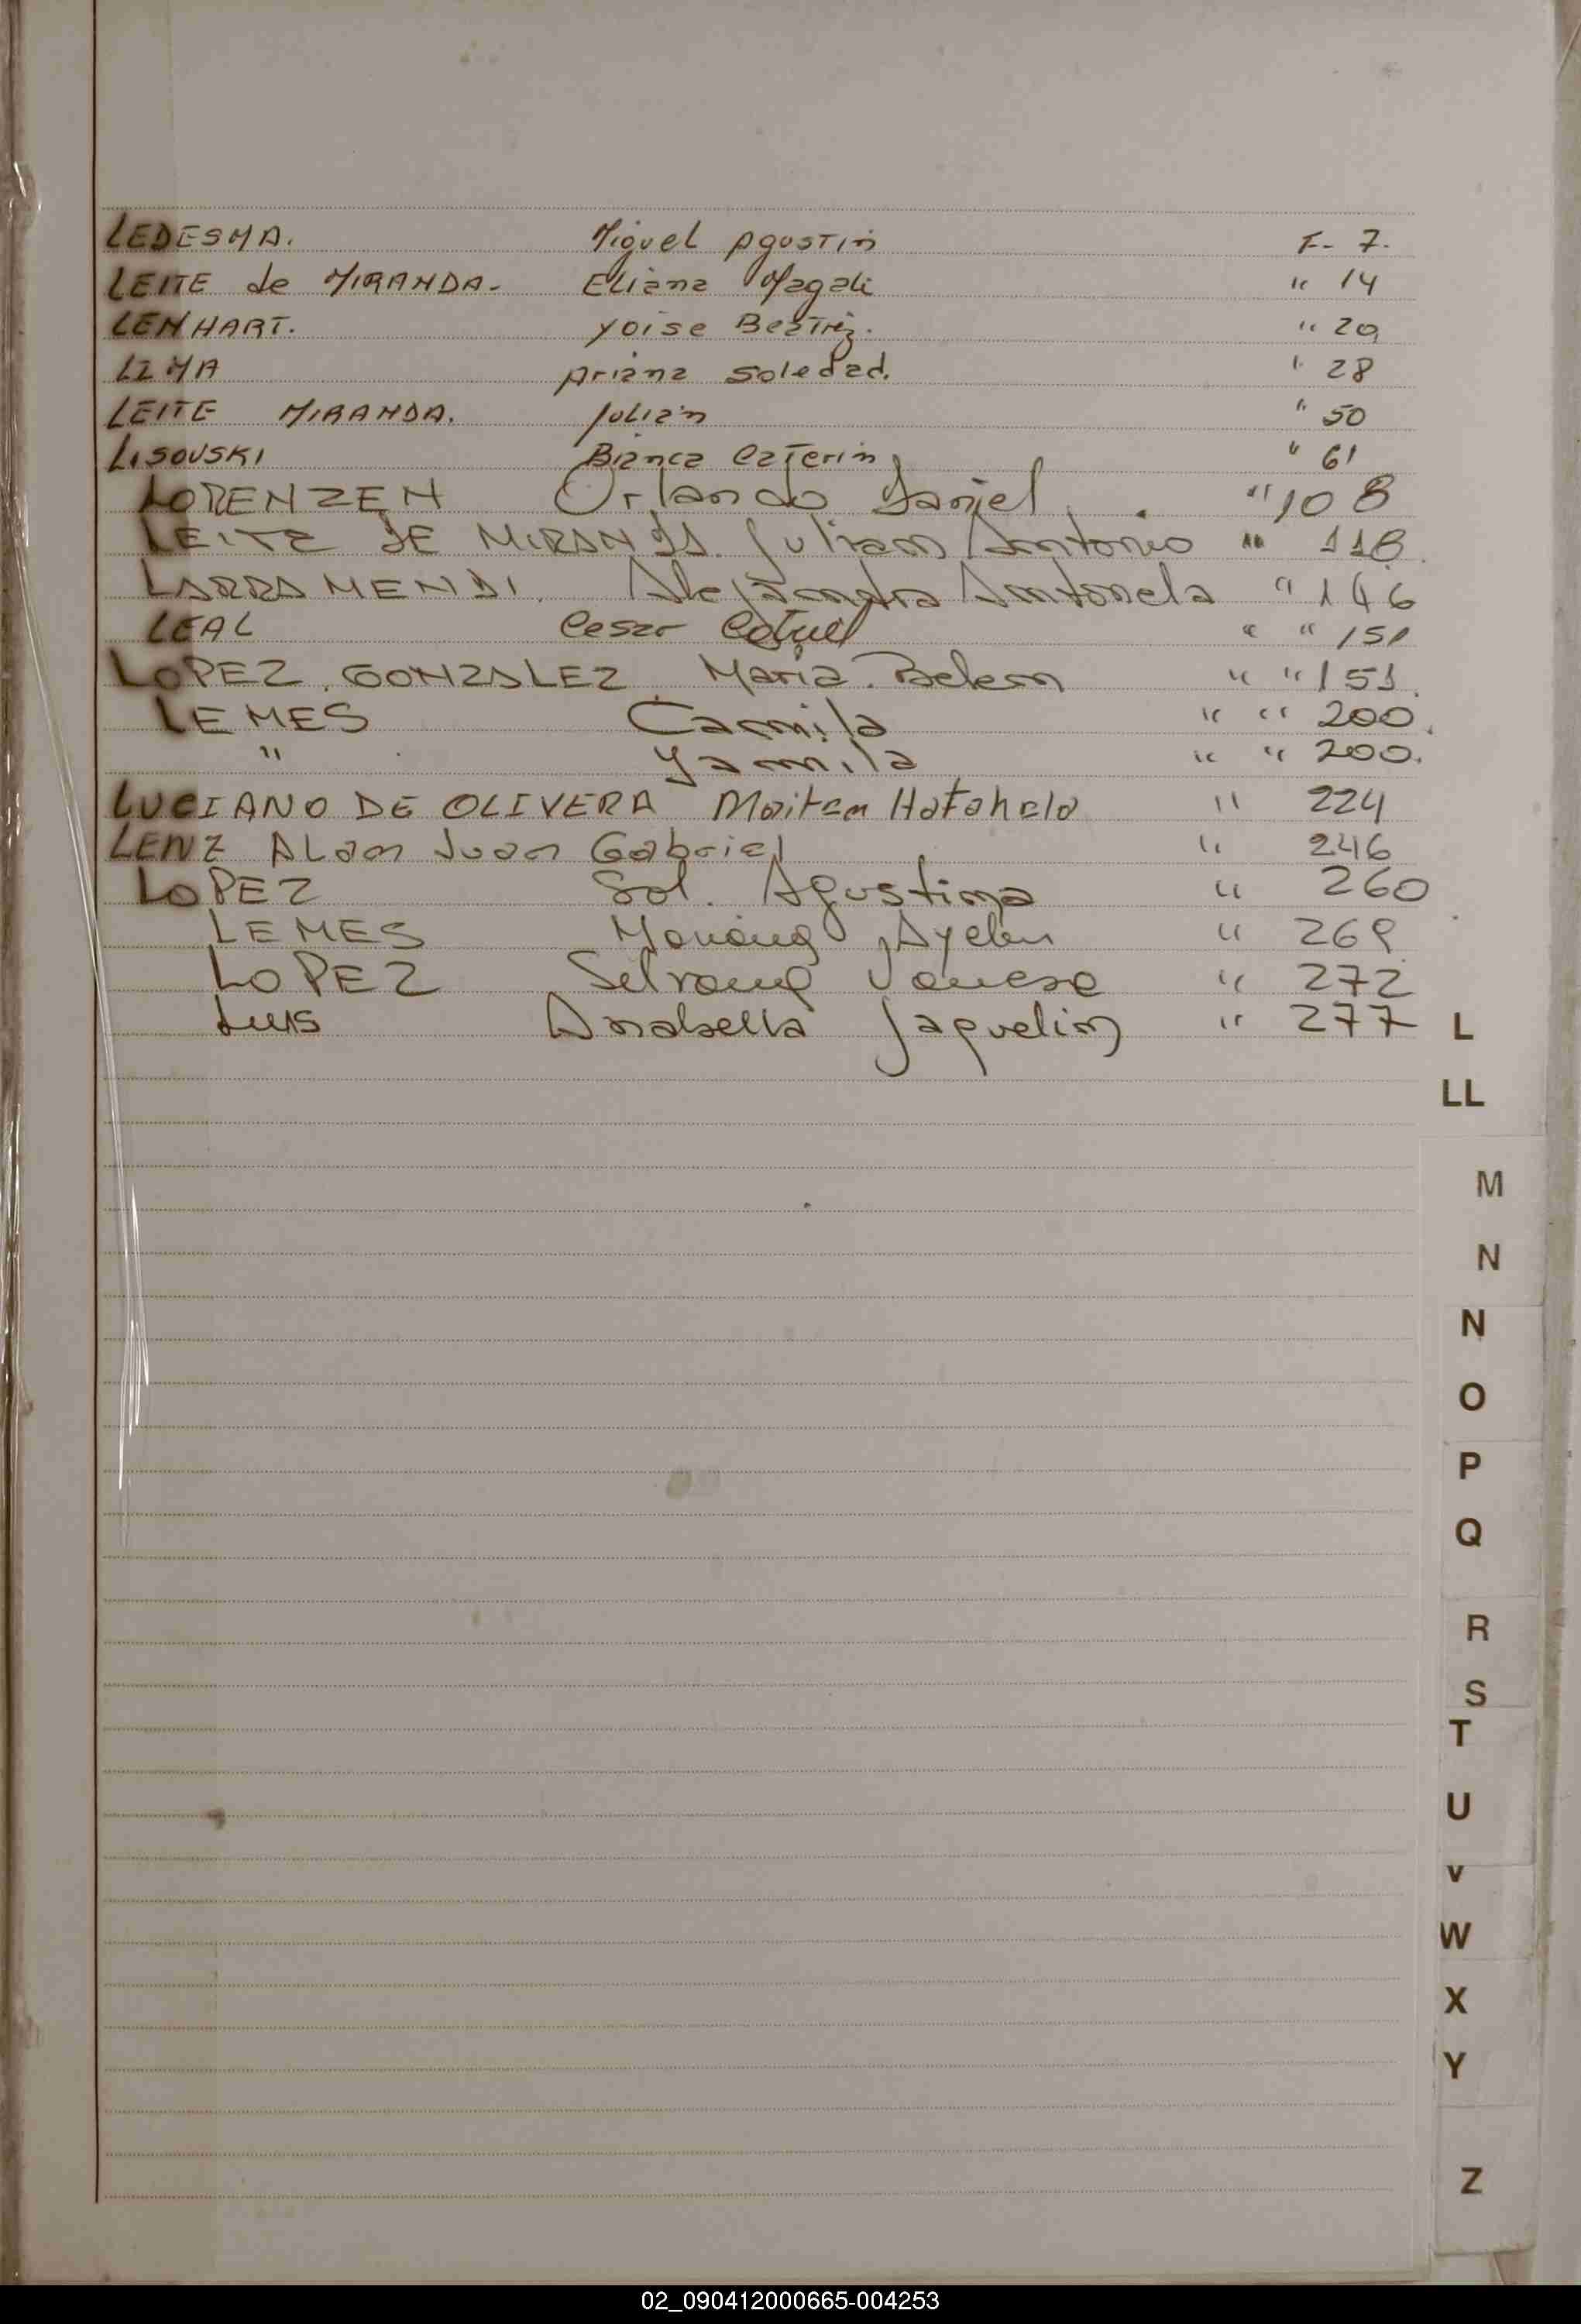 LEDESMA. Miguel Agustin F- 7.
LEITE de MIRANDA- Eliana Magali " 14
LENHART. Yoise Beatriz. " 20
LIMA Ariana Soledad. " 28
LEITE MIRANDA. Julián " 50
LISOVSKI Bianca Caterin " 61
LORENZEN Orlando Daniel " 108
LEITE DE MIRANDA. Julian Antonio " 118
LARRAMENDI. Alejandra Antonela " 146
LEAL Cesar " " 151
LOPEZ GONZALEZ Maria Belem " " 151
LEMES Camila " " 200
" Yamila " " 200.
LUCIANO DE OLIVERA " 224
LENZ Alan Juan Gabriel " 246
LOPEZ Sol. Agustina " 260
LEMES Ayelen " 269
LOPEZ " 272
LUIS Anabella Jaquelin " 277
L
LL
M
N
N
O
P
Q
R
S
T
U
V
W
X
Y
Z
02_090412000665-004253